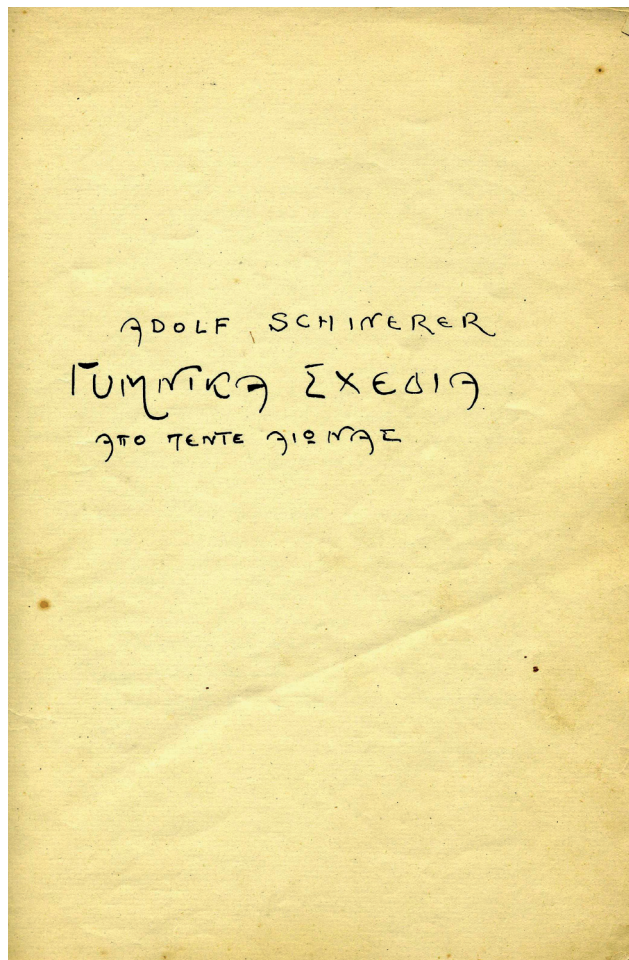 ADOLF SCHINERER
ΓΥΜΝΙΚΑ ΣΧΕΔΙΑ
ΑΠΟ ΠΕΝΤΕ ΑΙΩΝΑΣ